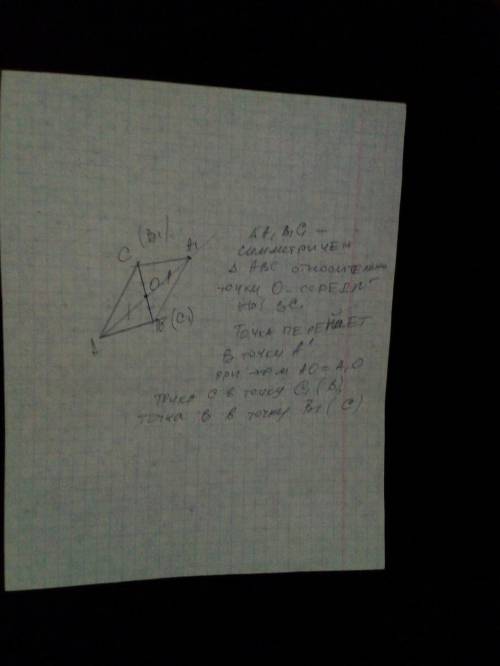 (B₁)
C
A₁
O
A
B (C₁)
Δ A₁ B₁ C₁ –
симметричен
Δ ABC относительно
точки O - середи
на BC
Точка перейдет
в точки A'
при этом AO = A₁O
точка C в точку C₁ (B)
точка B в точку B₁ (C)